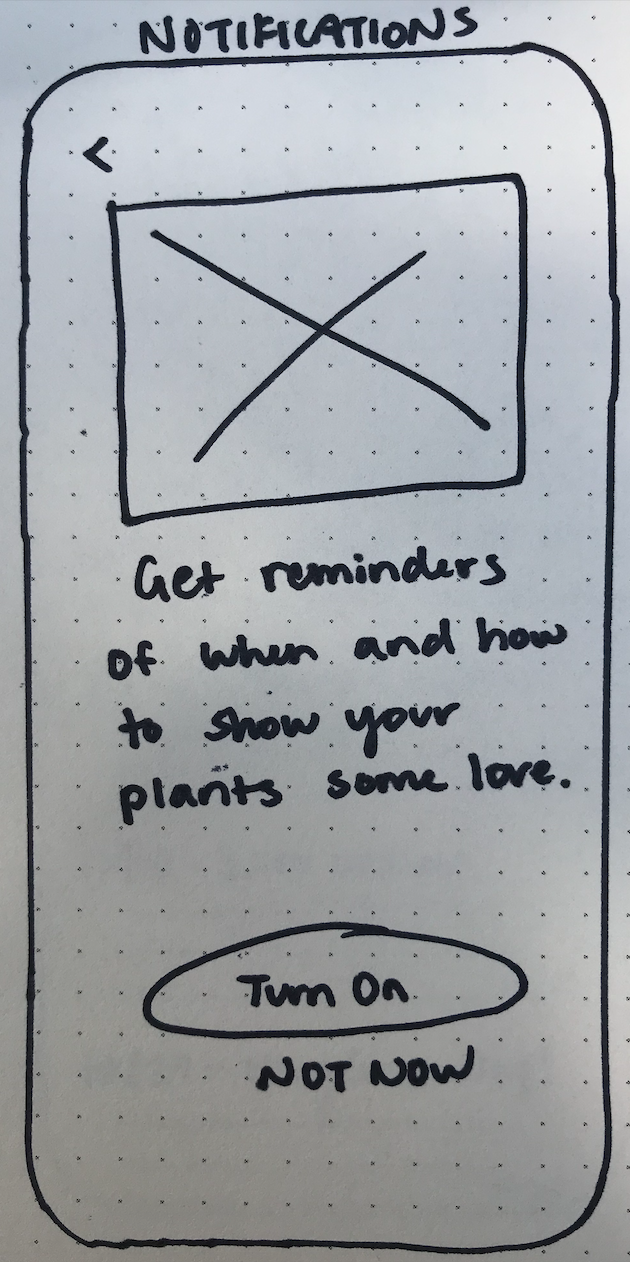 NOTIFICATIONS
<
Get reminders
of when and how
to show your
plants some love.
Turn On
NOT NOW